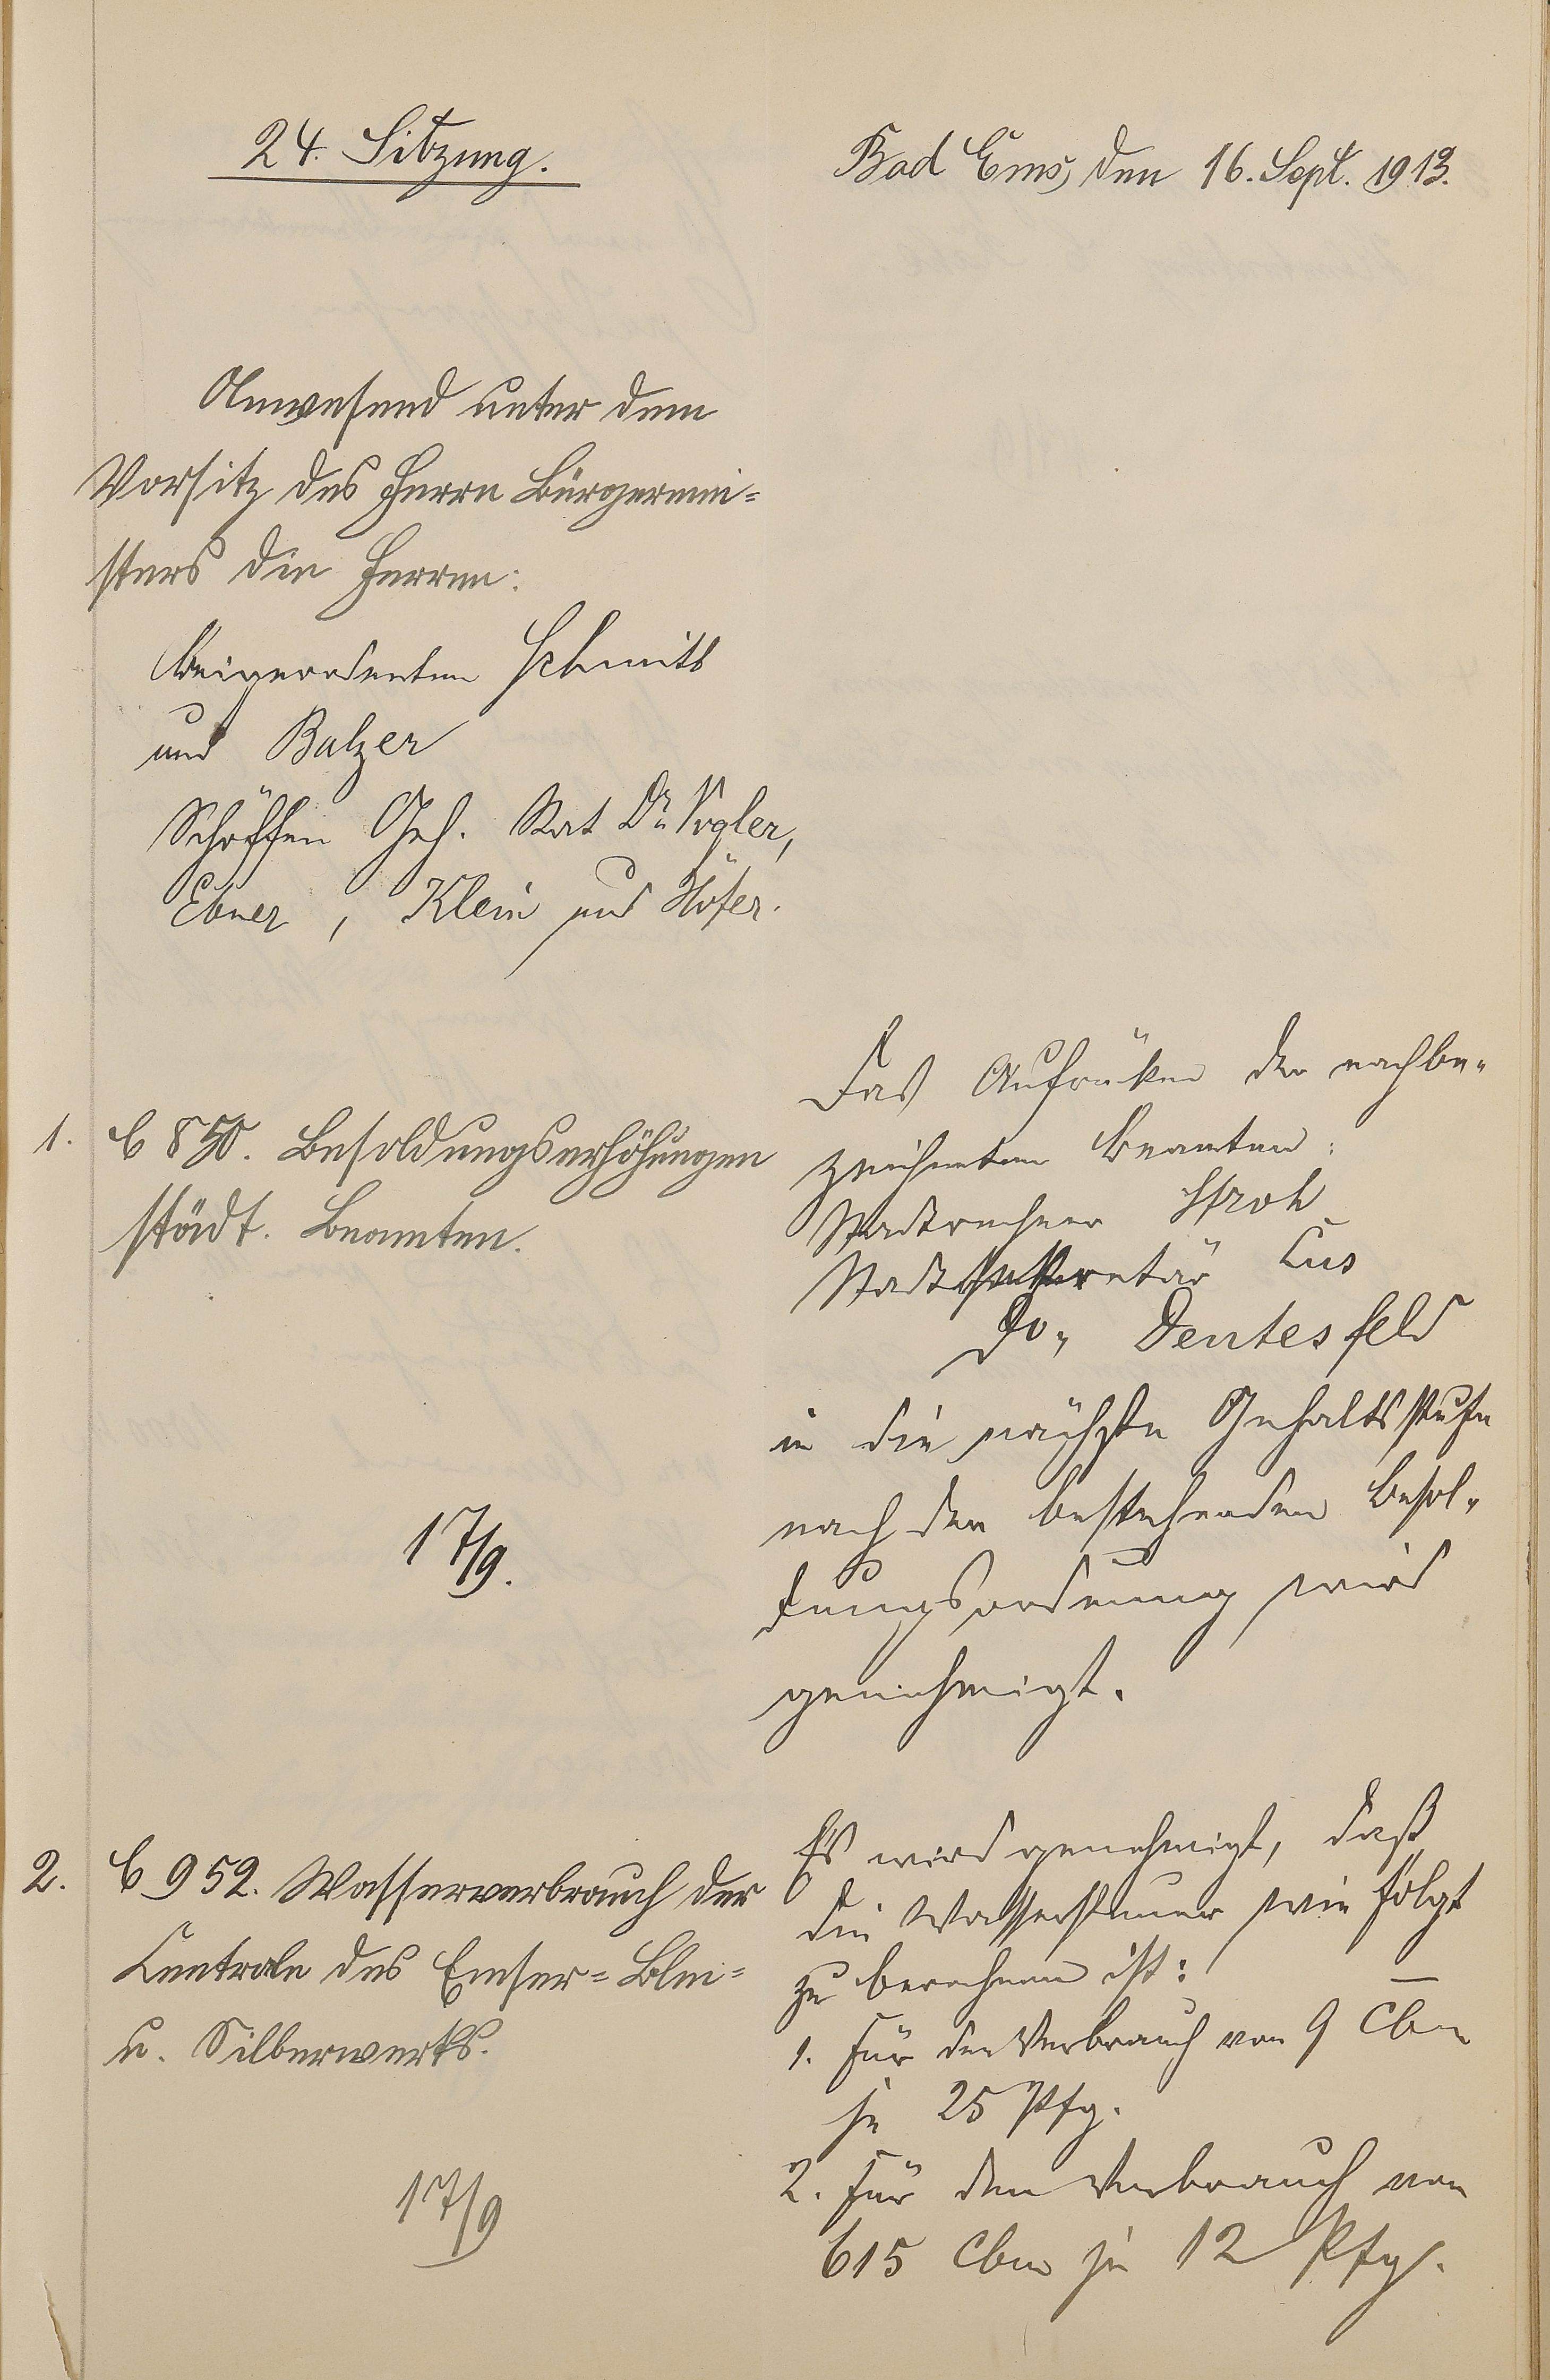 24. Sitzung.
Bad Ems, den 16. Sept. 1913.
Anwesend unter dem
Vorsitz des Herrn Bürgermei-
sters die Herren:
Beigeordneten Schmitt
und Balzer
Schöffen Geh. Rat Dr. Vogler,
Ebner, Klein und Höfer.
1. b 850. Besoldungserhöhungen
städt. Beamten.
17/9.
Das Aufrücken der nachbe-
zeichneten Beamten:
Stadtrechner Stroh
Stadtsekretär Lus
do. Dentesfeld
in die nächste Gehaltsstufe
nach der bestehenden Besol-
dungsordnung wird
genehmigt.
2. b 952. Wasserverbrauch der
Centrale des Emser-Blei-
u. Silberwerks.
17/9
Es wird genehmigt, daß
die Wassersteuer wie folgt
zu berechnen ist:
1. Für den Verbrauch von 9 cbm
je 25 Pfg.
2. Für den Verbrauch von
615 cbm je 12 Pfg.